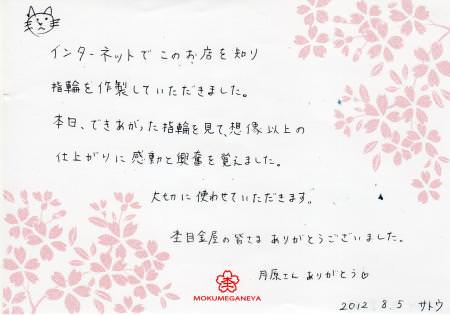 インターネットでこのお店を知り
指輪を作製していただきました。
本日、できあがった指輪を見て、想像以上の
仕上がりに感動と興奮を覚えました。
大切に使わせていただきます。
杢目金屋の皆さま ありがとうございました。
月原さん ありがとう
杢
MOKUMEGANEYA
2012 8.5 サトウ